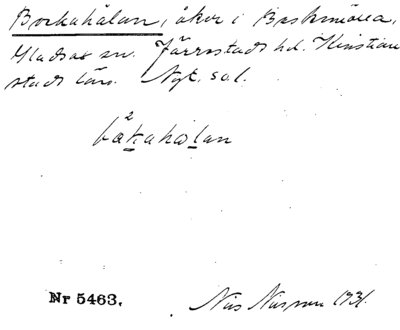 Bockahålan, åker i Baskemölla,
Gladsax sn. Järrestads hd. Kristian
stads län. Nyt. sal.
Nr 5463.
Nils Nilsson 1931.